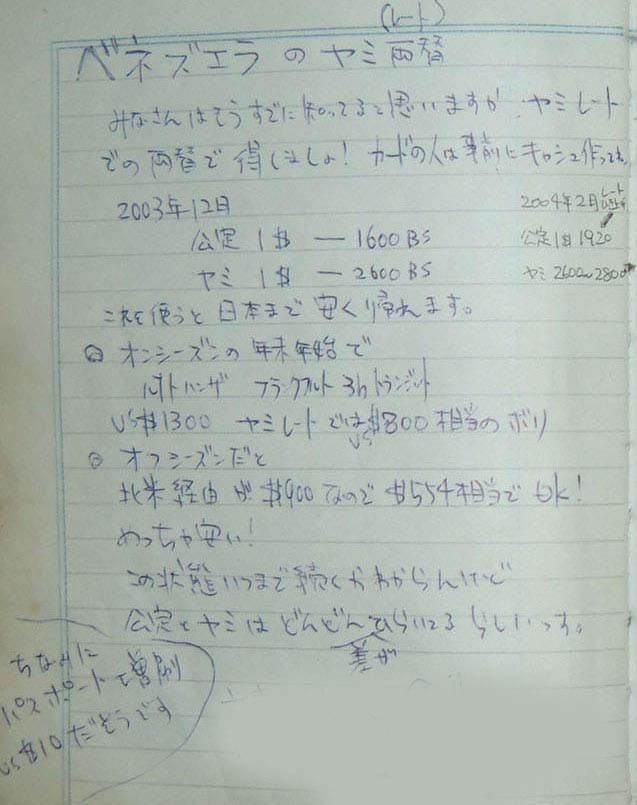 (レート)
ベネズエラのヤミ両替
みなさんはもうすでに知ってると思いますが、ヤミレート
での両替で得しましょ! カードの人は事前にキャッシュ作っても
2003年12月
公定 1$ — 1600BS
ヤミ 1$ — 2600BS
2004年2月 レート
公定1$ 1920
ヤミ 2600~2800
これを使うと日本まで安く帰れます。
◎ オンシーズンの年末年始で
ルフトハンザ フランクフルト 3hトランジット
US$1300 ヤミレートではUS$800相当のボリ
◎ オフシーズンだと
北米経由が$900なので$554相当でok!
めっちゃ安い!
この状態いつまで続くかわからんけど
公定とヤミはどんどんひらいてるらしいっす。
差が
ちなみに
パスポート増刷
US$10だそうです